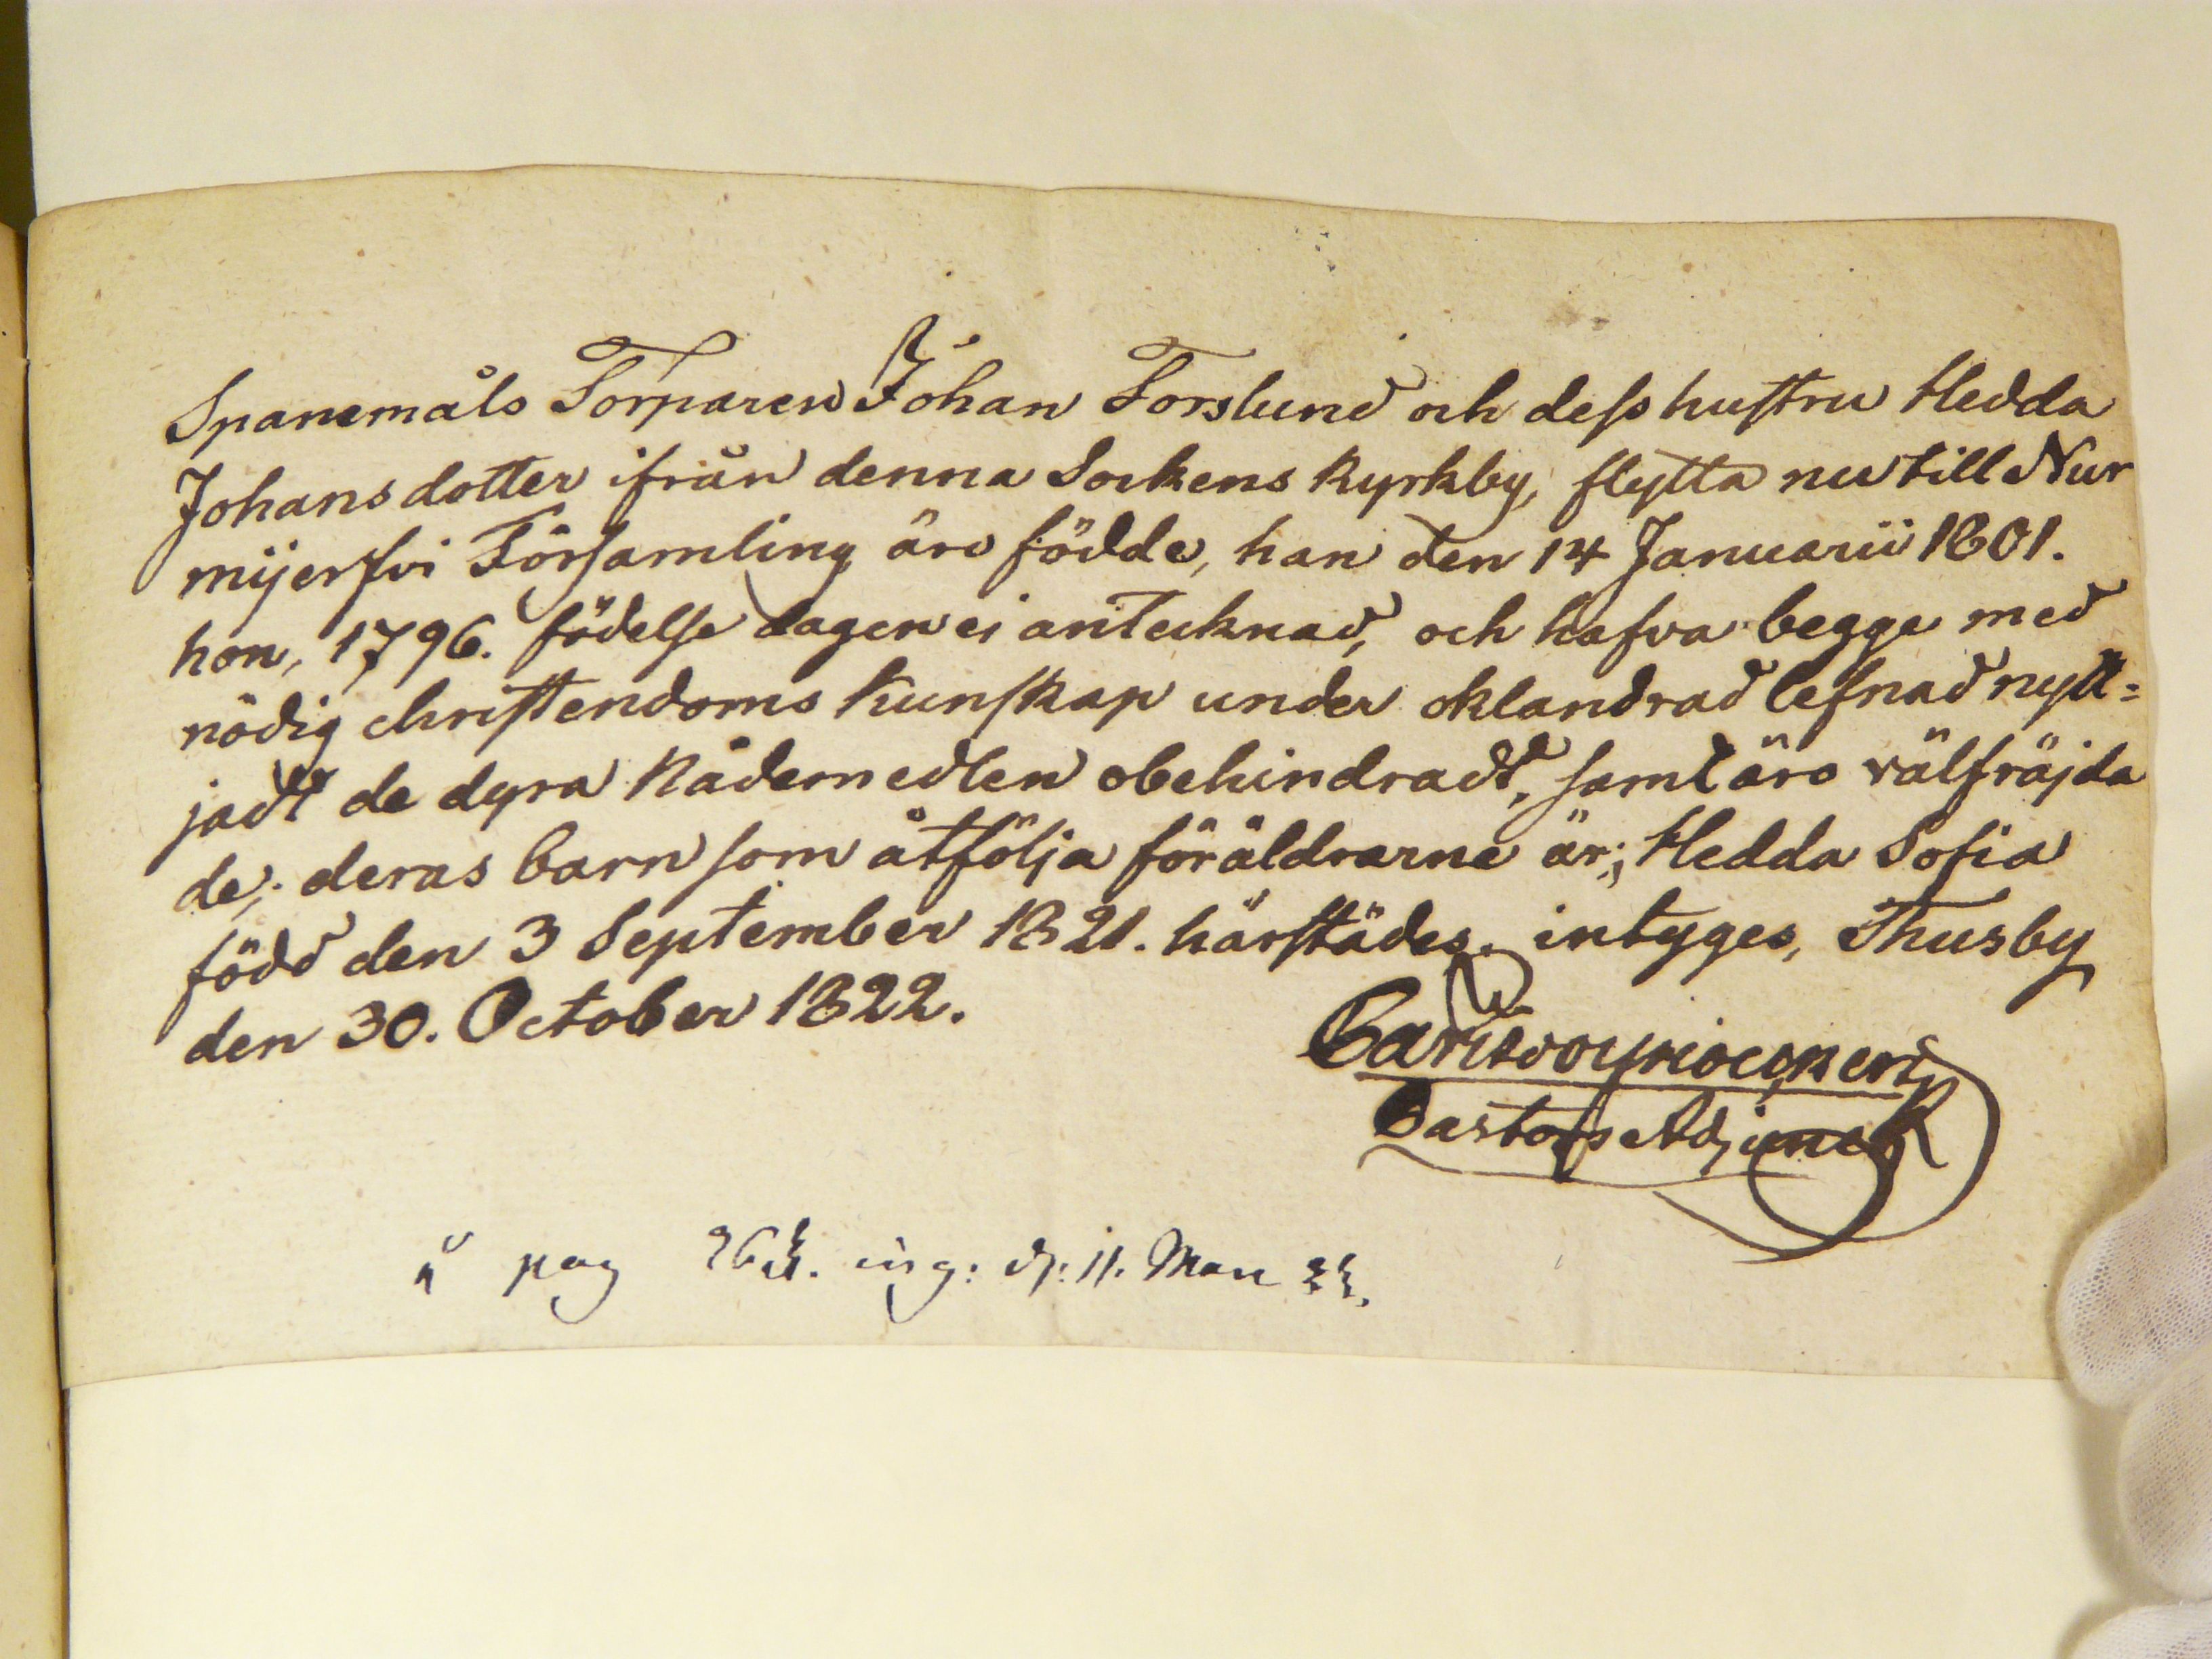 Spanemåls Torparen Johan Forslund och dess hustru Hedda
Johansdotter ifrån denna Sockens Kyrkby, flytta nu till Nur
mijerfvi Församling äro födde, han den 14 Januarii 1801.
hon, 1796. födelse dagen ei antecknad, och hafva begge med
nödig christendoms Kunskap under oklandrad lefnad nytt=
jadt de dyra Nådemedlen obehindradt, samt äro välfräjda
de; deras barn som åtfölja föräldrarne är; Hedda Sofia
född den 3 September 1821. härstädes. intyges, Thusby
den 30. October 1822.
Pastors Adjunct
pag